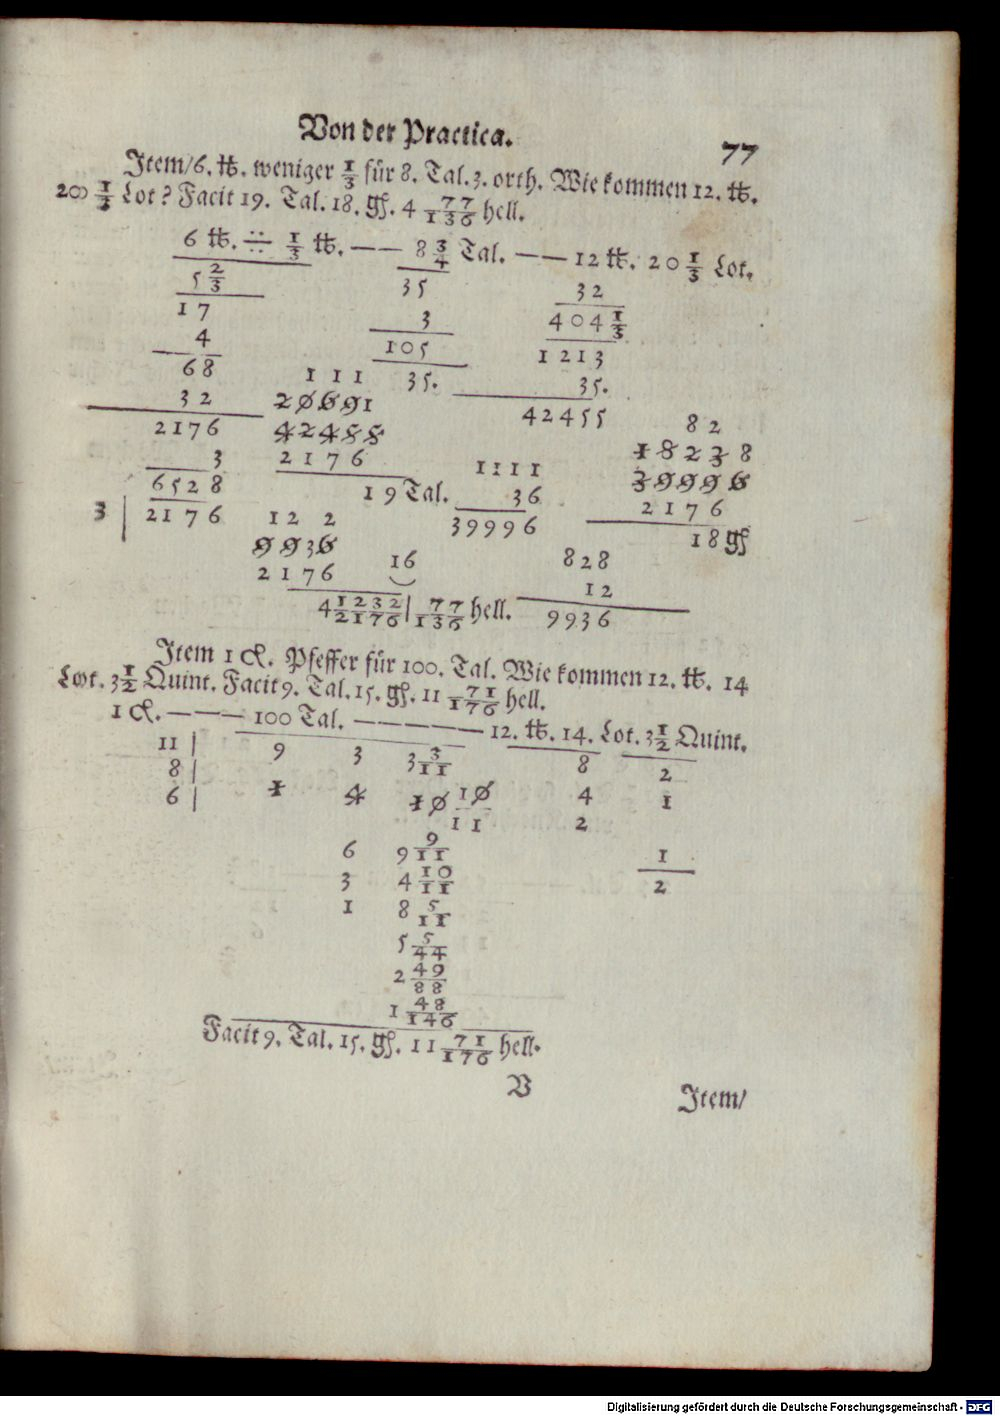 Von der Practica.
77
Item/6. ℔. weniger 1/3 für 8. Tal. 3. orth. Wie kommen 12. ℔.
20 1/3 Lot? Facit 19. Tal. 18. gß. 4 77/136 hell.
6 ℔. ÷ 1/3 ℔. —— 8 3/4 Tal. —— 12 ℔. 20 1/3 Lot.
5 2/3 35 32
17 3 404 1/3
4 105 1213
68 111 35. 35.
32 20691 42455 82
2176 42455 18238
3 2176 1111 39996
6528 19 Tal. 36 2176
3 | 2176 122 39996 18 gß
9936 16 828
2176 12
4 1232/2176 | 77/136 hell. 9936
Item 1 ℭ. Pfeffer für 100. Tal. Wie kommen 12. ℔. 14
Lot. 3 1/2 Quint. Facit 9. Tal. 15. gß. 11 71/176 hell.
1 ℭ. ——— 100 Tal. ————— 12. ℔. 14. Lot. 3 1/2 Quint.
11 | 9 3 3 3/11 8 2
8 | 1 4 10 10/11 4 1
6 | 2
6 9 9/11 1/2
3 4 10/11
1 8 5/11
5 5/44
2 49/88
1 48/146
Facit 9. Tal. 15. gß. 11 71/176 hell.
V
Item/
Digitalisierung gefördert durch die Deutsche Forschungsgemeinschaft - DFG